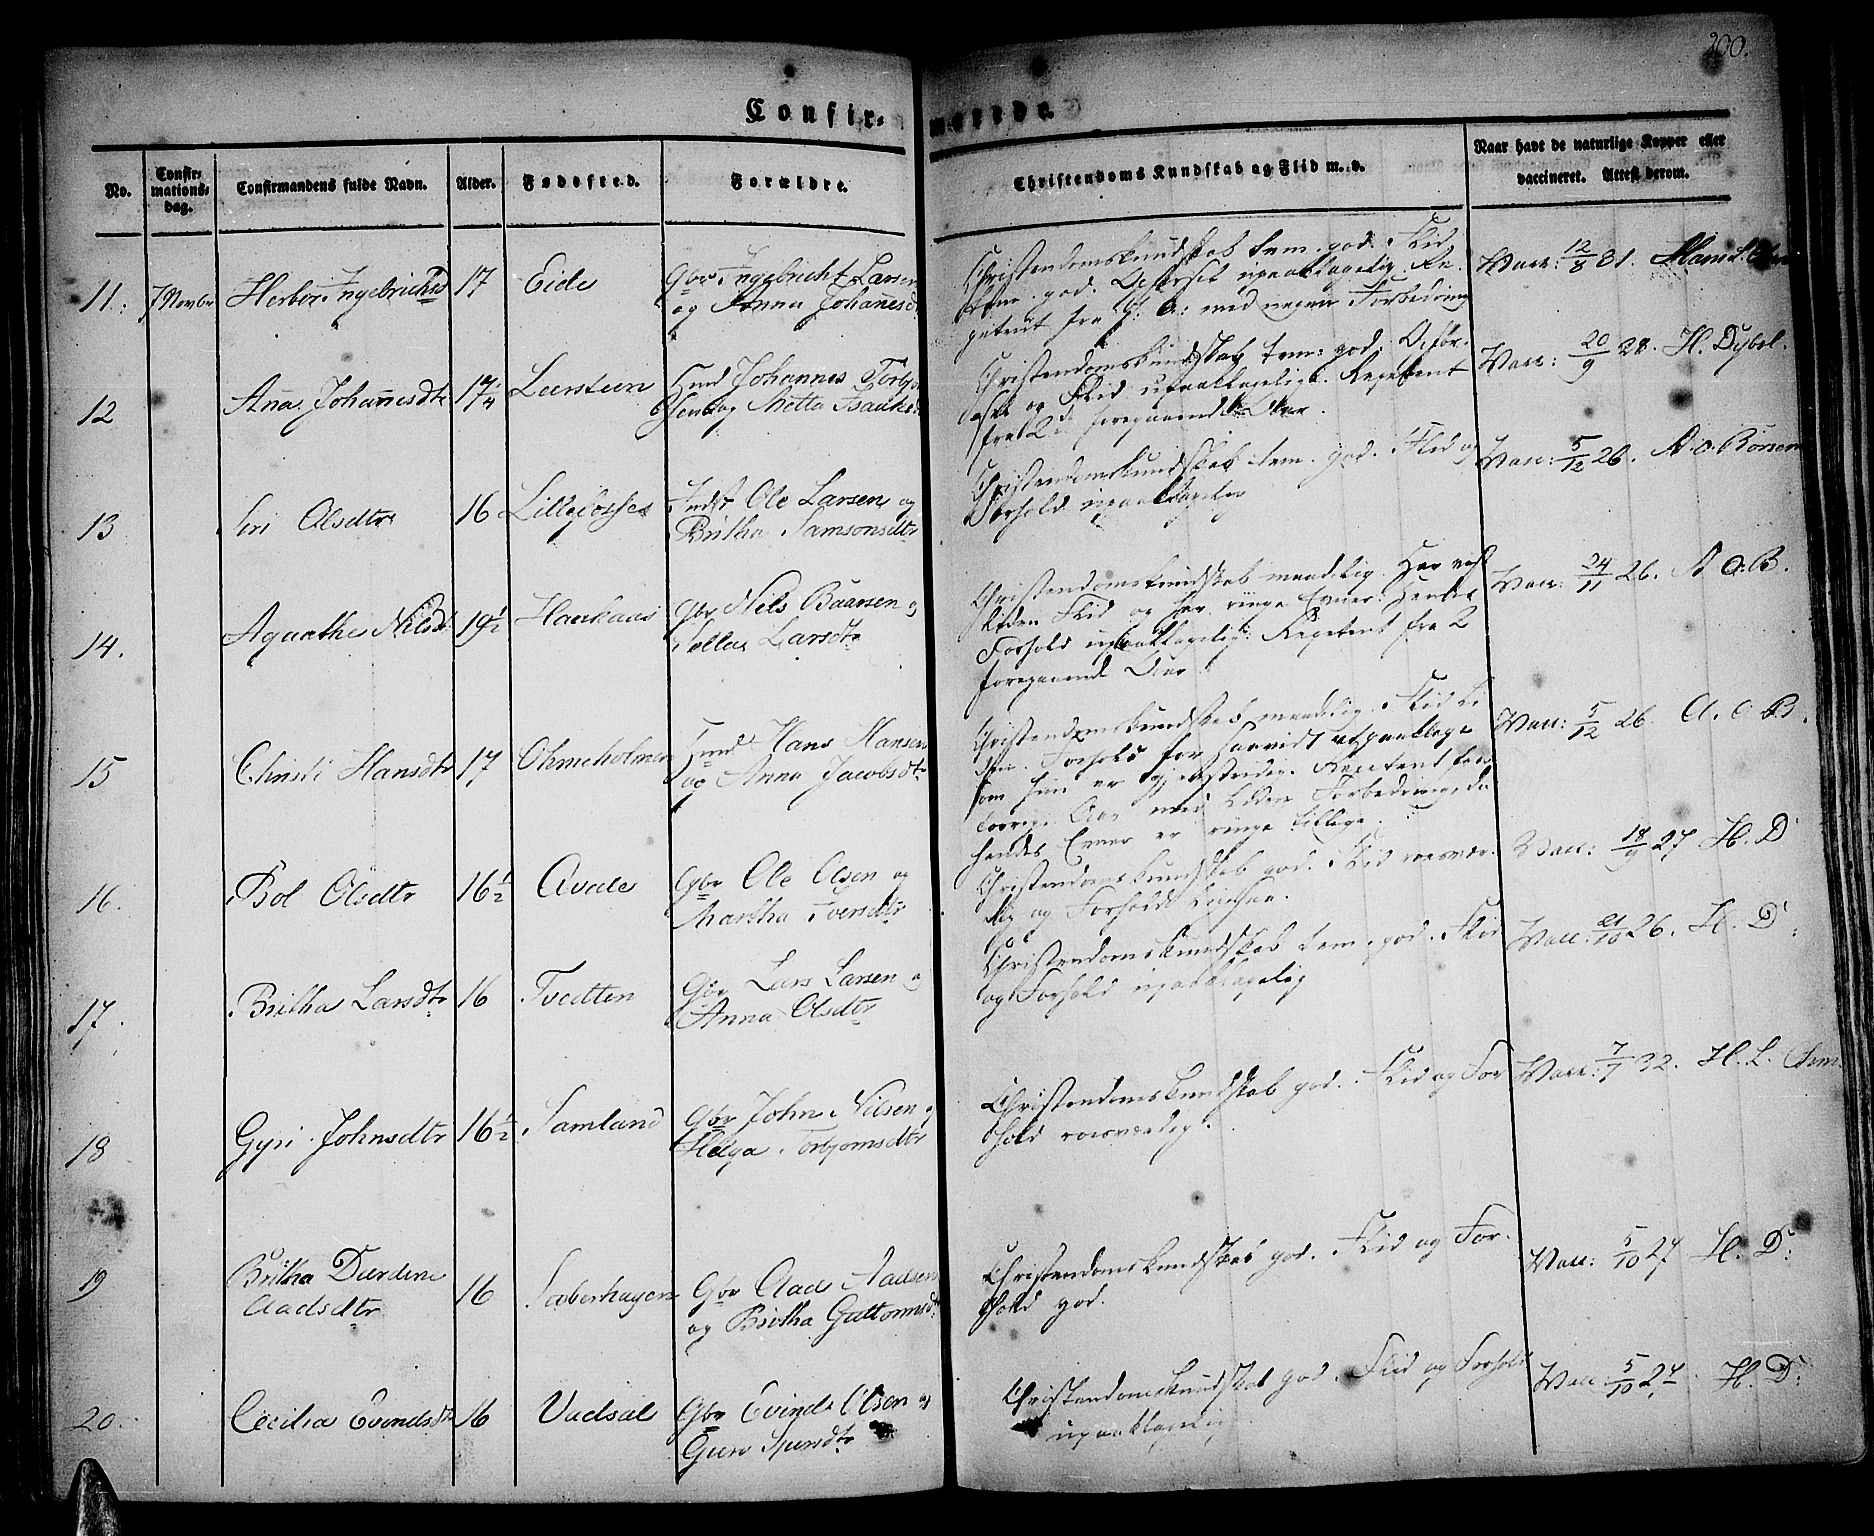 200.
Confir- merede.
No.
Confir-
mations-
dag.
Confirmandens fulde Navn.
Alder.
Fødested.
Forældre.
Christendoms Kundskab og Flid m. v.
Naar havt de naturlige Kopper eller
vaccineret. Attest derom.
11. 7 Novbr Herbor Ingebrichtsd 17 Eide Gbr Ingebricht Larsen
og Anna Johanesd
Christendomskundskab tem. god. Flid
god. Opførsel upaaklagelig. Re-
petent fra f. A: med nogen Forbedring
Vacc: 12/8 31. Hans L.
12 Ana Johannesdtr 17 1/4 Leersteen Huusmd Johannes Torbjø
og Metta Isaaks
Christendomskundskab tem: god. Opfør-
sel og Flid upaaklagelige. Repetent
fra 2de foregaaende Aar.
Vacc: 20/9 28. H. Dybol.
13 Siri Olsdtr 16 Lillefosse Inds Ole Larsen og
Britha Samsonsdtr
Christendomskundskab tem. god. Flid og
Forhold upaaklagelig
Vacc: 5/12 26. A. O. Börsem
14. Agaathe Nilsdt 19 1/2 Haukaas Gbr Nils Baarsen og
Larsdtr
Christendomskundskab maadelig. Har vist
liden Flid og har ringe Evner. Hendes
Forhold upaaklagelig. Repetent fra 2
foregaaende Aar.
Vacc: 24/11 26. A O. B.
15 Christi Hansdtr 17 Ohmeholmen Huusmd Hans Hansen
og Anna Jacobsdtr
Christendomskundskab maadelig. Flid li-
den. Forhold for saavidt upaaklage
som hun er gjenstridig. Repetent fra
forrige Aar med liden Forbedring, da
hendes Evner er ringe tillige.
Vacc: 5/12 26. A. O B.
16. Bol Olsdtr 16 1/2 Qvale Gbr Ole Olsen og
Martha Iversdtr
Christendomskundskab god. Flid roesvær-
dig og Forhold ligesaa.
Vacc: 18/9 27 H. D
17. Britha Larsdtr 16 Tvedten Gbr Lars Larsen og
Anna Olsdtr
Christendomskundskab tem. god. Flid
og Forhold upaaklagelig
Vacc: 21/10 26. H. D:
18 Gyri Johnsdtr 16 1/2 Samland Gbr John Nilsen og
Helga Torbjornsdtr
Christendomskundskab god. Flid og For
hold roesværdig.
Vacc: 7/7 32. H. L.
19 Britha Dærdine
Aadsdtr 16 Saberhagen Gbr Aad Aadsen
og Britha Guttormsdtr
Christendomskundskab god. Flid og For-
hold god.
Vacc: 5/10 27 H. D:
20. Cecilia Evindsdtr 16 Vadsal Gbr Evind Olsen og
Guro Sjursdtr
Christendomskundskab god. Flid og Forhold
upaaklagelig
Vacc: 5/10 27. H. D: